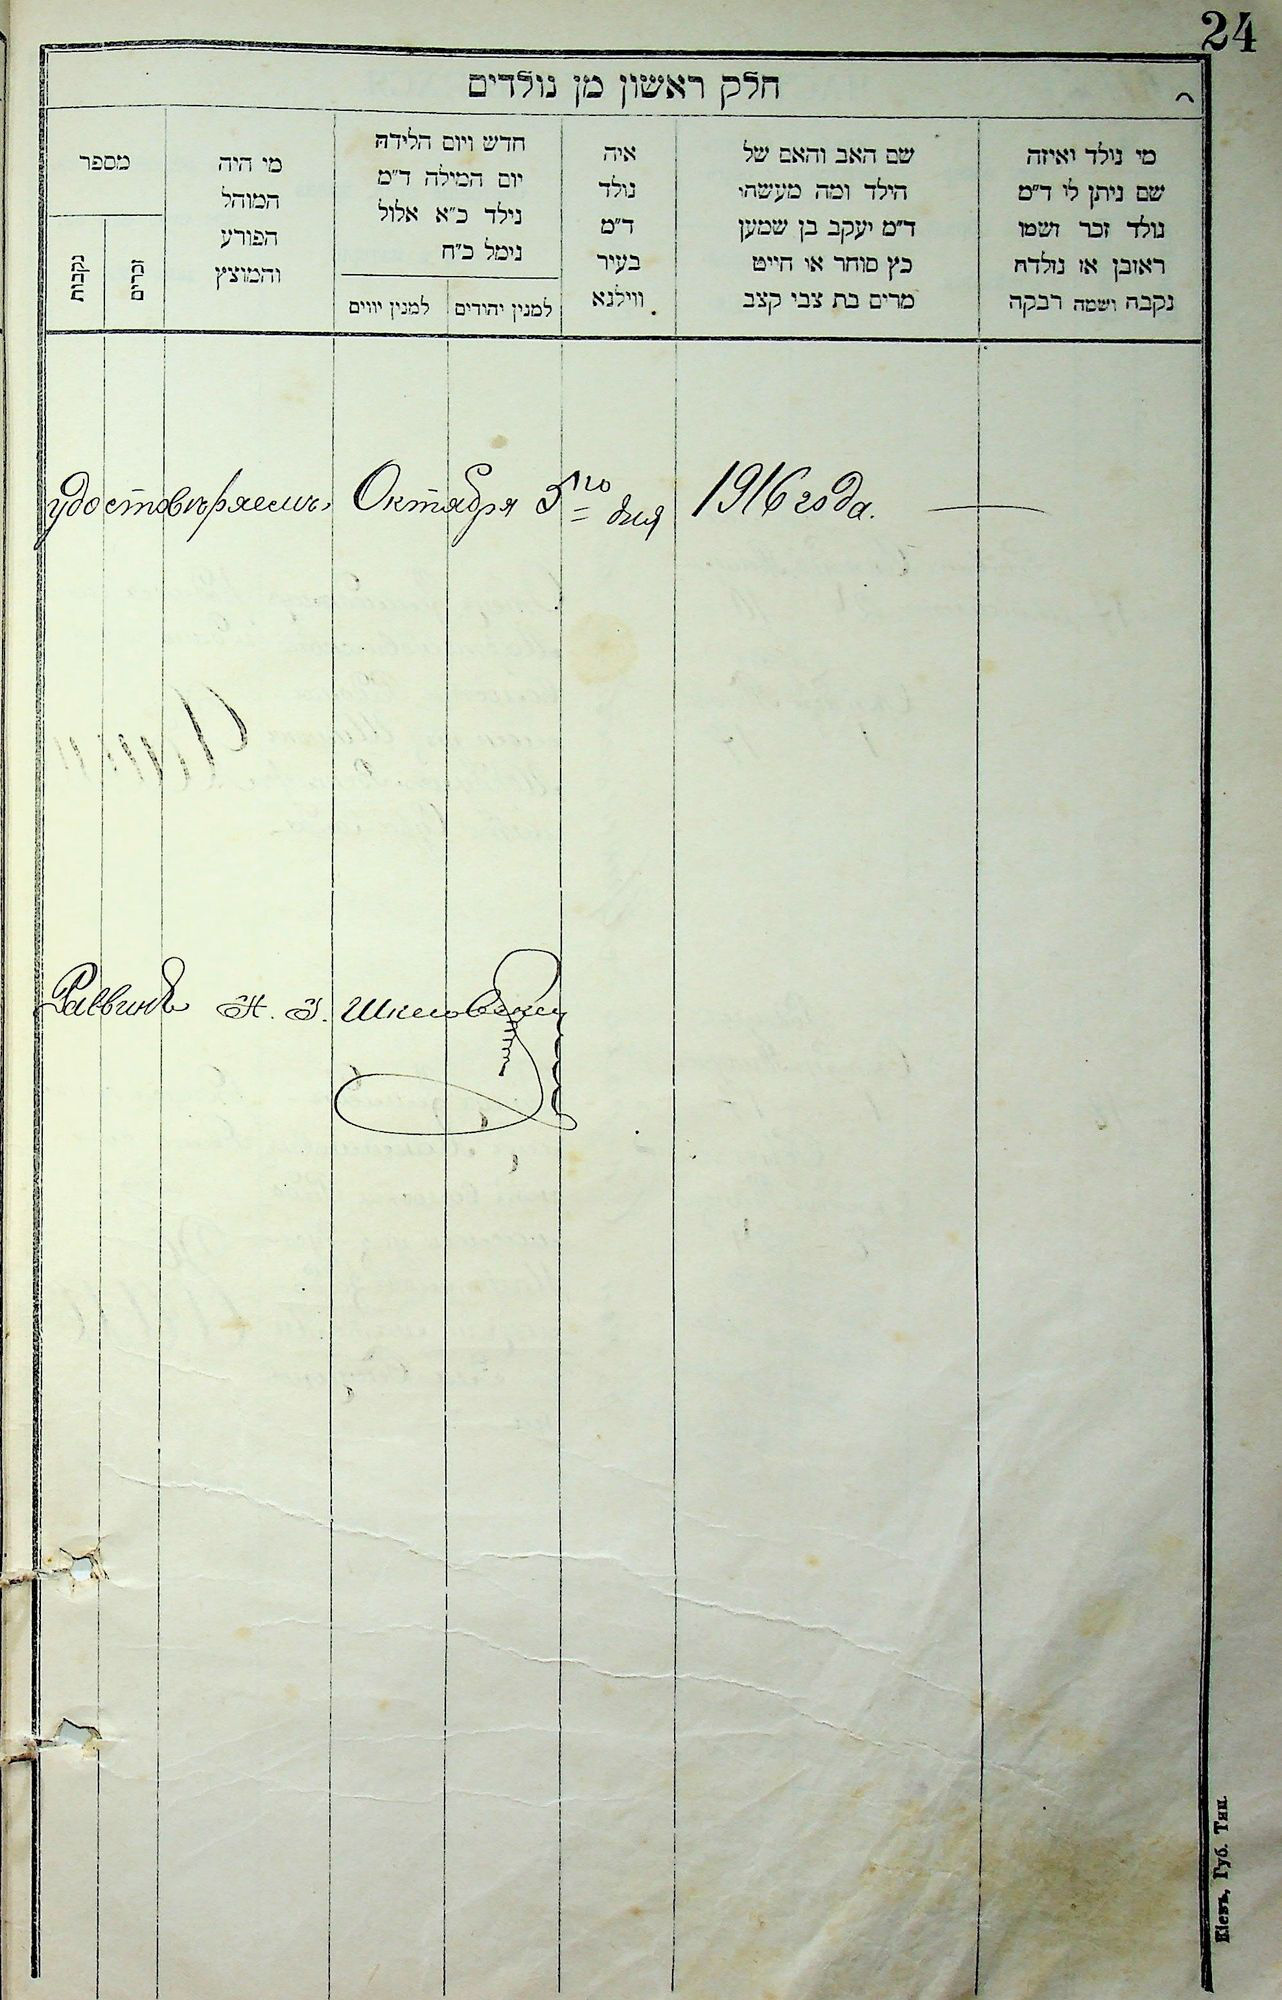 24
חלק ראשון מן נולדים
מי נולד ואיזה
שם ניתן לו ד"מ
נולד זכר ושמו
ראובן או נולדה
נקבה ושמה רבקה
שם האב והאם של
הילד ומה מעשהו
ד"מ יעקב בן שמעון
כץ סוחר או חייט
מרים בת צבי קצב
איה
נולד
ד"מ
בעיר
ווילנא
חדש ויום הלידה
יום המילה ד"מ
נילד כ"א אלול
נימל כ"ח
למנין יהודים
למנין יווים
מי היה
המוהל
הפורע
והמוצץ
מספר
זכרים
נקבות
удостовѣряемъ, Октября 5го дня 1916 года.
Раввинъ Н. Я. Шкловскій
Кіевъ, Губ. Тип.